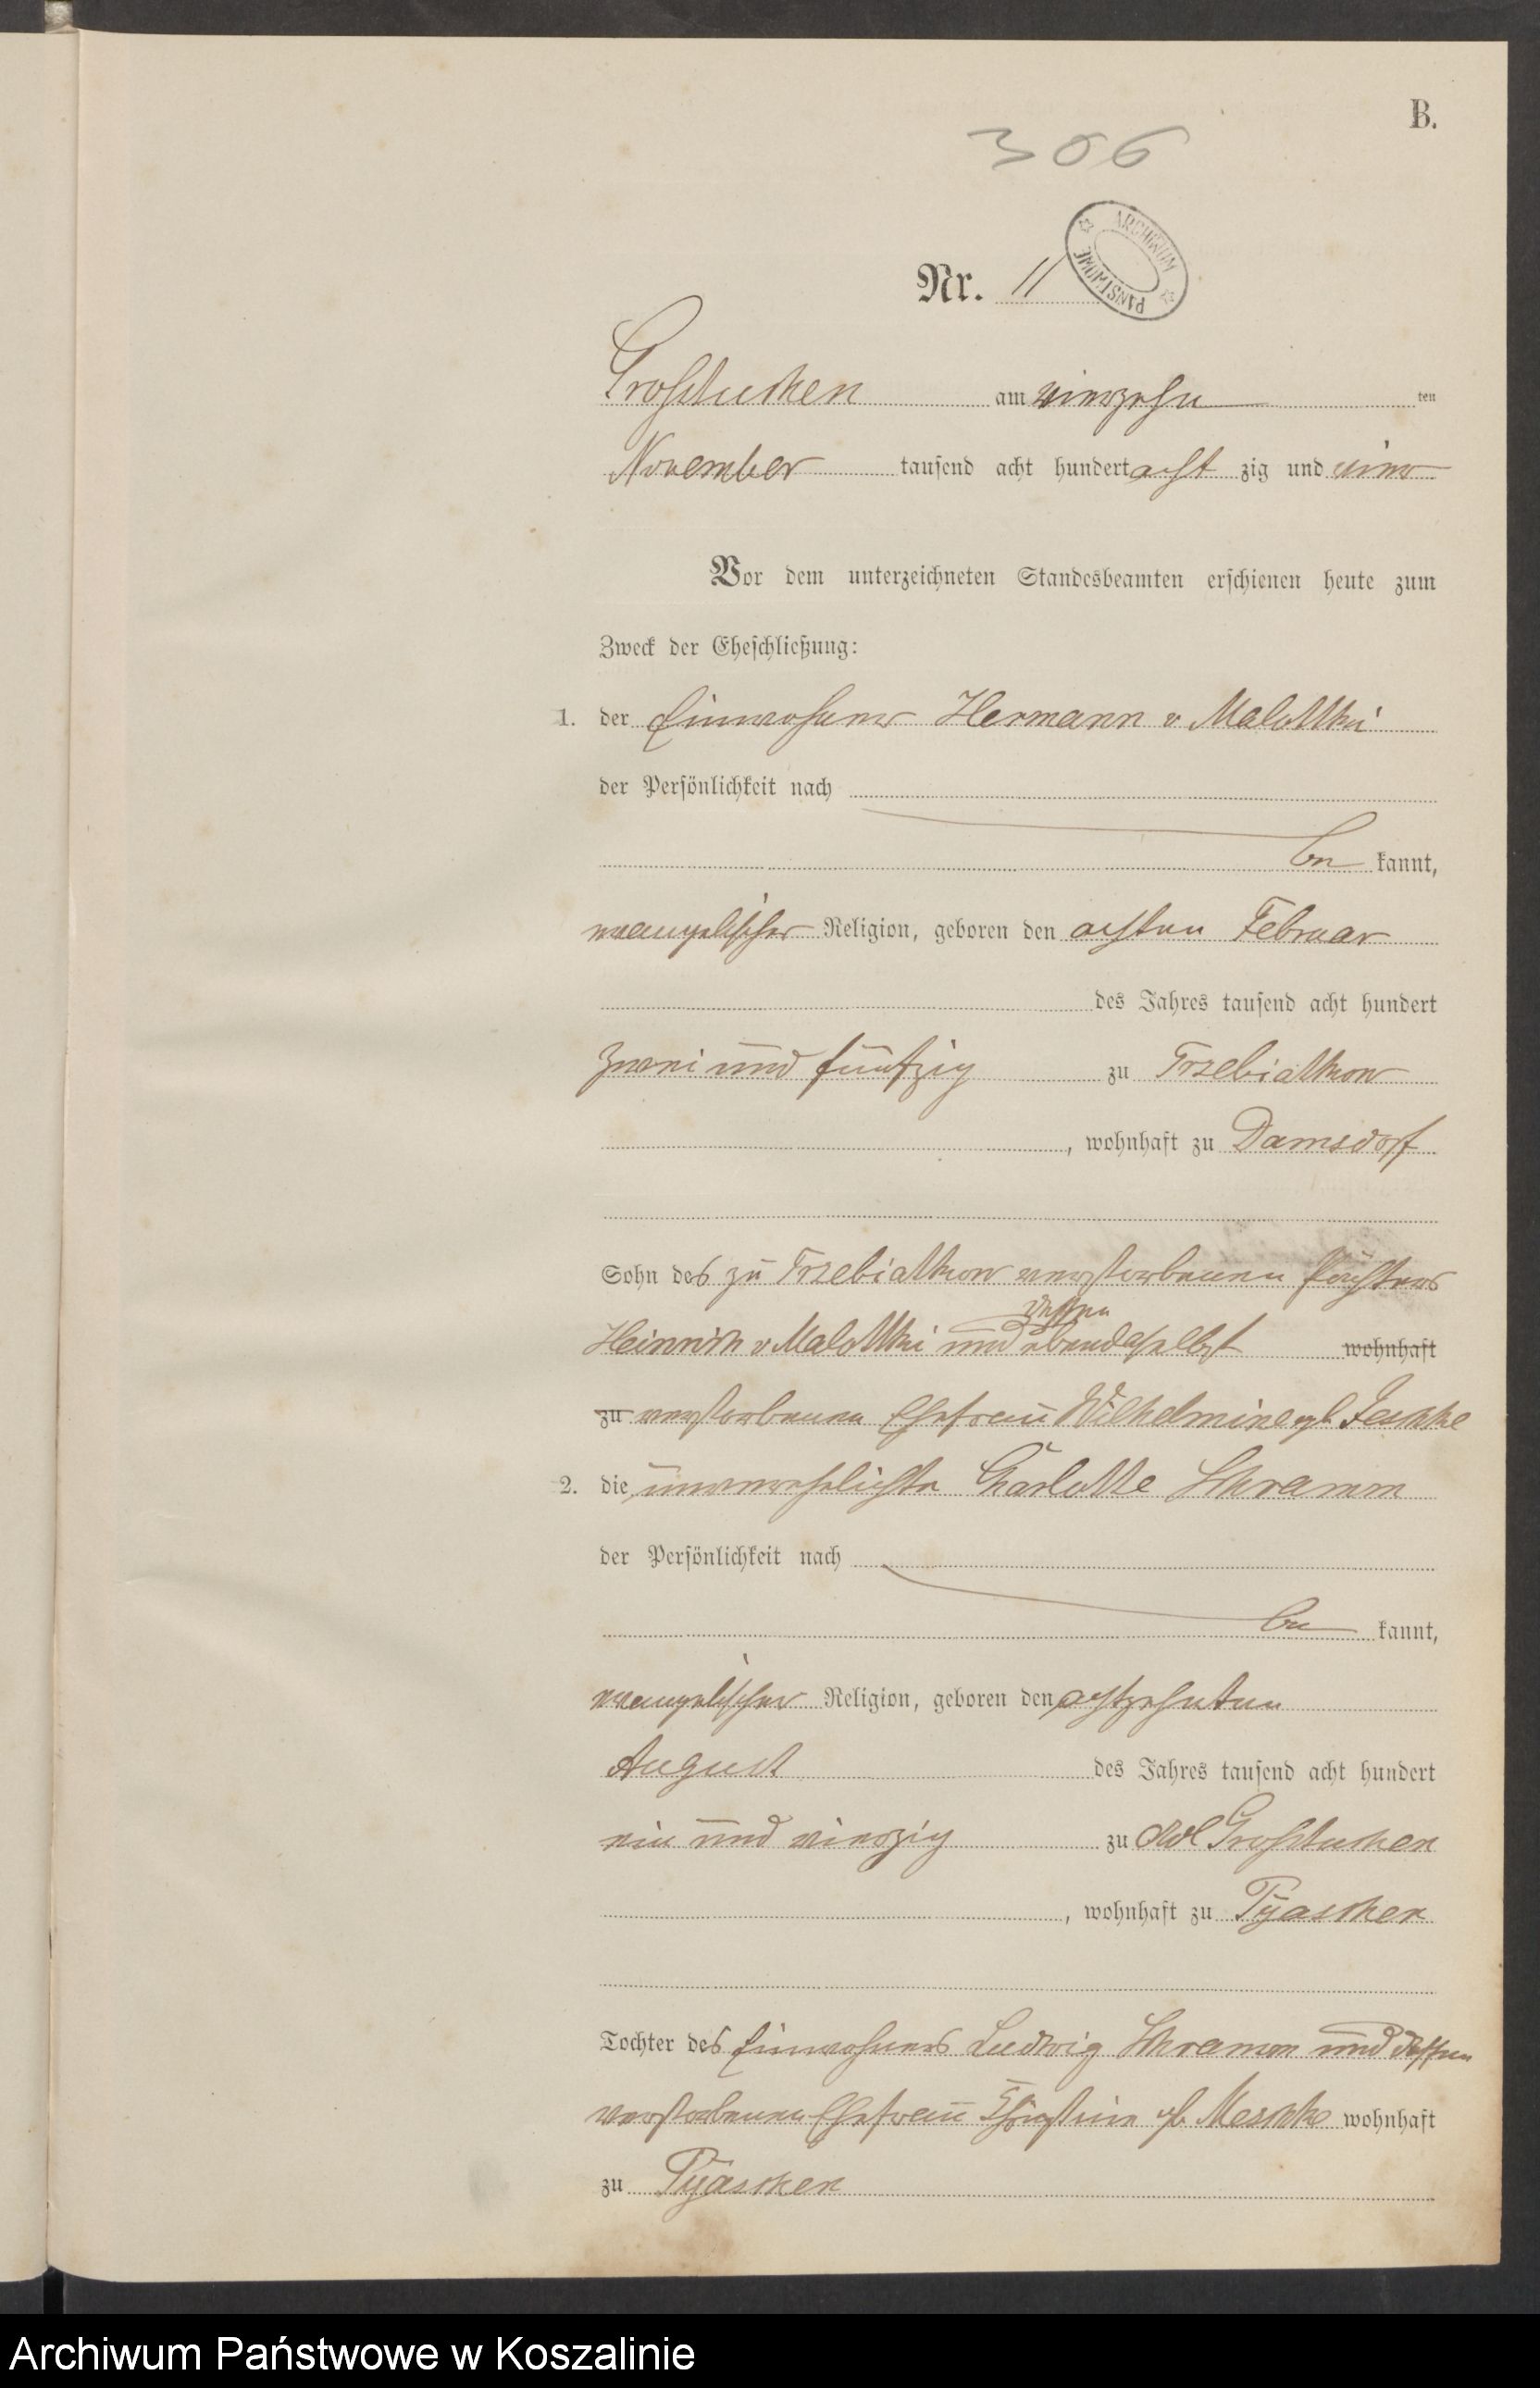 B.
306
ARCHIWUM PAŃSTWOWE
Nr. 11
Großtuchen am vierzehn ten
November tausend acht hundert acht zig und vier
Vor dem unterzeichneten Standesbeamten erschienen heute zum
Zweck der Eheschließung:
1. der Einwohner Hermann v Malottki
der Persönlichkeit nach
be kannt,
evangelischer Religion, geboren den achten Februar
des Jahres tausend acht hundert
zwei und fünfzig zu Trzebiatkow
, wohnhaft zu Damsdorf
Sohn des zu Trzebiatkow verstorbenen Pächters
dessen
Heinrich v Malottki und ebendaselbst wohnhaft
zu verstorbenen Ehefrau Wilhelmine geb Jeschke
2. die unverehelichte Charlotte Schramm
der Persönlichkeit nach
be kannt,
evangelischer Religion, geboren den achtzehnten
August des Jahres tausend acht hundert
ein und vierzig zu Adl Großtuchen
, wohnhaft zu Pyaschen
Tochter des Einwohners Ludwig Schramm und dessen
verstorbenen Ehefrau Christine gb Meschke wohnhaft
zu Pyaschen
Archiwum Państwowe w Koszalinie